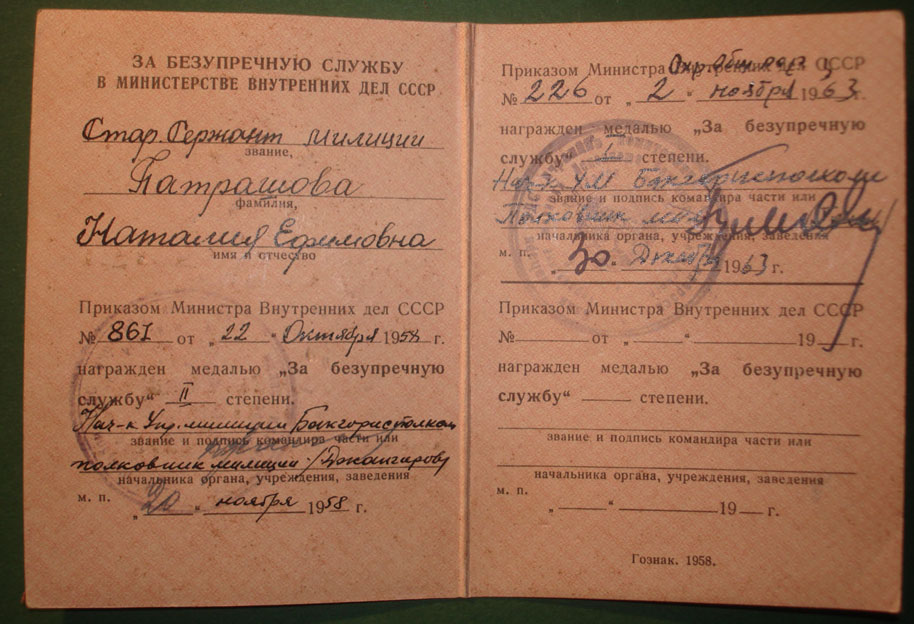 ЗА БЕЗУПРЕЧНУЮ СЛУЖБУ
В МИНИСТЕРСТВЕ ВНУТРЕННИХ ДЕЛ СССР
Стар. Сержант милиции
звание,
Патрашова
фамилия,
Наталия Ефимовна
имя и отчество
Приказом Министра Внутренних дел СССР
№ 861 от „22“ Октября 1958 г.
награжден медалью „За безупречную
службу“ II степени.
Нач-к Упр. милиции Бакгорисполкома
звание и подпись командира части или
полковник милиции /Джангиров/
начальника органа, учреждения, заведения
м. п.
„20“ ноября 1958 г.
Приказом Министра Внутренних дел СССР
Охр. общ.
№ 226 от „2“ ноября 1963 г.
награжден медалью „За безупречную
службу“ I степени.
Нач-к УМ Бакгорисполкома
звание и подпись командира части или
Полковник
начальника органа, учреждения, заведения
м. п.
30 1963 г.
Приказом Министра Внутренних дел СССР
№ от „ “ 19 г.
награжден медалью „За безупречную
службу“ степени.
звание и подпись командира части или
начальника органа, учреждения, заведения
м. п.
„ “ 19 г.
Гознак. 1958.